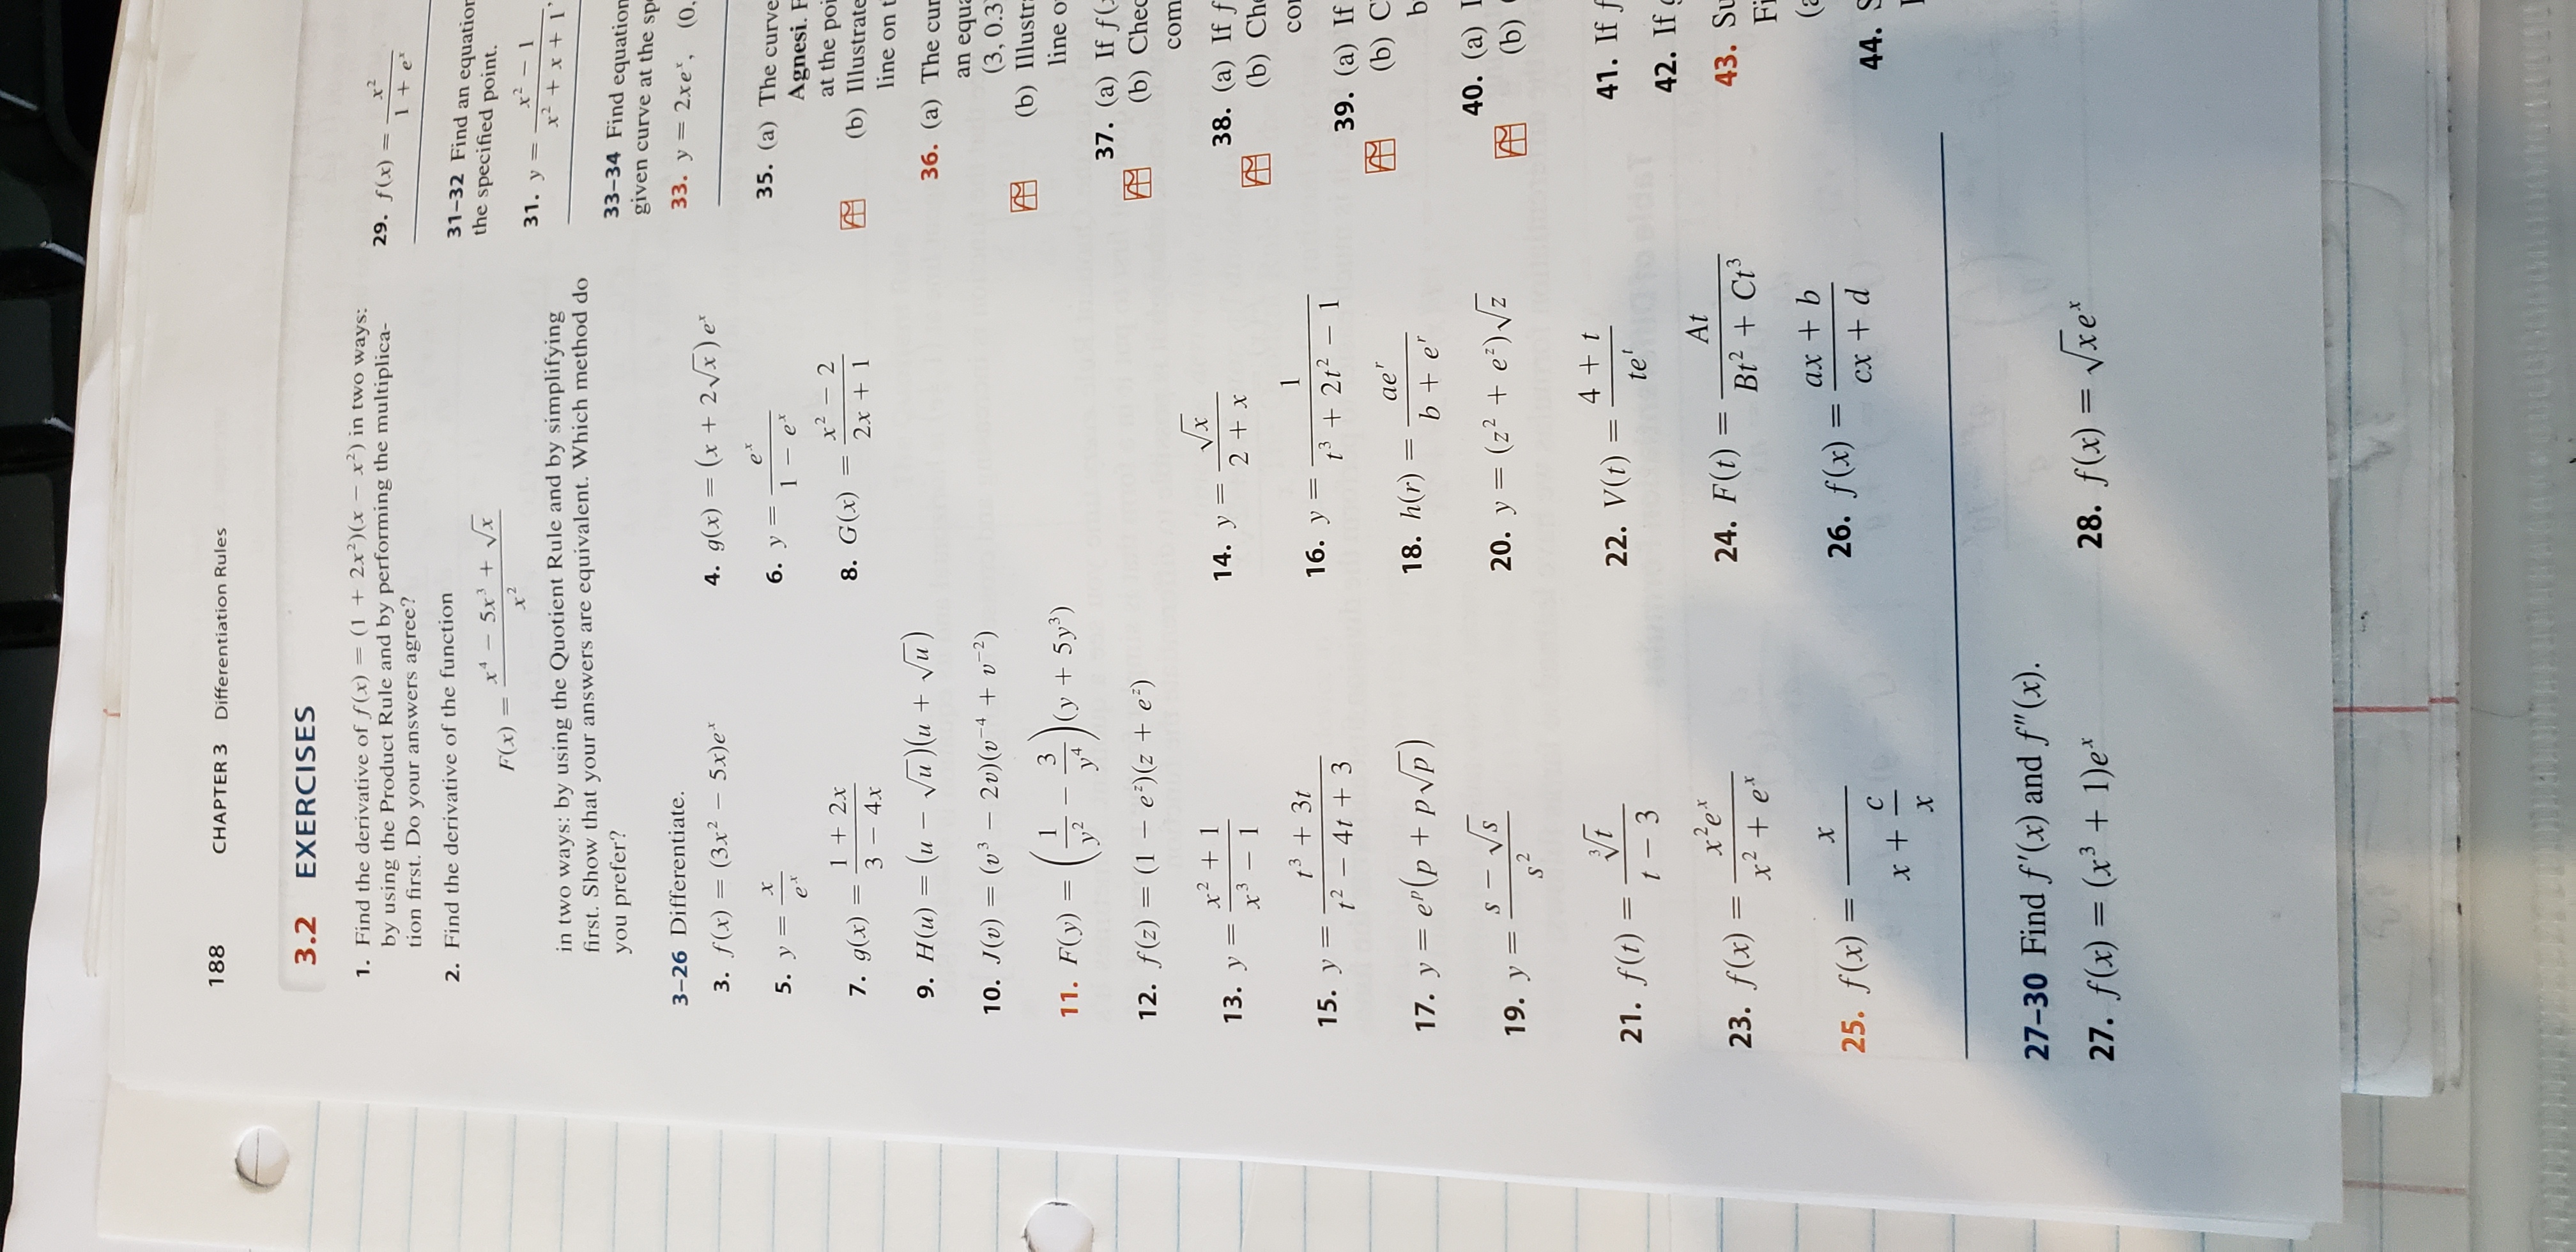 188 CHAPTER 3 Differentiation Rules
3.2 EXERCISES
1. Find the derivative of f(x) = (1 + 2x²)(x − x²) in two ways:
by using the Product Rule and by performing the multiplica-
tion first. Do your answers agree?
2. Find the derivative of the function
F(x) = (x⁴ − 5x³ + √x) / x²
in two ways: by using the Quotient Rule and by simplifying
first. Show that your answers are equivalent. Which method do
you prefer?
3–26 Differentiate.
3. f(x) = (3x² − 5x)eˣ 4. g(x) = (x + 2√x)eˣ
5. y = x / eˣ 6. y = eˣ / (1 − eˣ)
7. g(x) = (1 + 2x) / (3 − 4x) 8. G(x) = (x² − 2) / (2x + 1)
9. H(u) = (u − √u)(u + √u)
10. J(v) = (v³ − 2v)(v⁻⁴ + v⁻²)
11. F(y) = (1/y² − 3/y⁴)(y + 5y³)
12. f(z) = (1 − eᶻ)(z + eᶻ)
13. y = (x² + 1) / (x³ − 1) 14. y = √x / (2 + x)
15. y = (t³ + 3t) / (t² − 4t + 3) 16. y = 1 / (t³ + 2t² − 1)
17. y = eᵖ(p + p√p) 18. h(r) = aeʳ / (b + eʳ)
19. y = (s − √s) / s² 20. y = (z² + eᶻ)√z
21. f(t) = ∛t / (t − 3) 22. V(t) = (4 + t) / teᵗ
23. f(x) = x²eˣ / (x² + eˣ) 24. F(t) = At / (Bt² + Ct³)
25. f(x) = x / (x + c/x) 26. f(x) = (ax + b) / (cx + d)
27–30 Find f′(x) and f″(x).
27. f(x) = (x³ + 1)eˣ 28. f(x) = √x eˣ
29. f(x) = x² / (1 + eˣ)
31–32 Find an equation
the specified point.
31. y = (x² − 1) / (x² + x + 1),
33–34 Find equation
given curve at the
33. y = 2xeˣ, (0,
35. (a) The curve
Agnesi.
at the
(b) Illustrate
line on
36. (a) The
an
(3, 0.3
(b)
line
37. (a) If f(
(b)
38. (a) If f
(b)
39. (a) If
(b)
40. (a)
(b)
41. If f
42. If
43.
44.